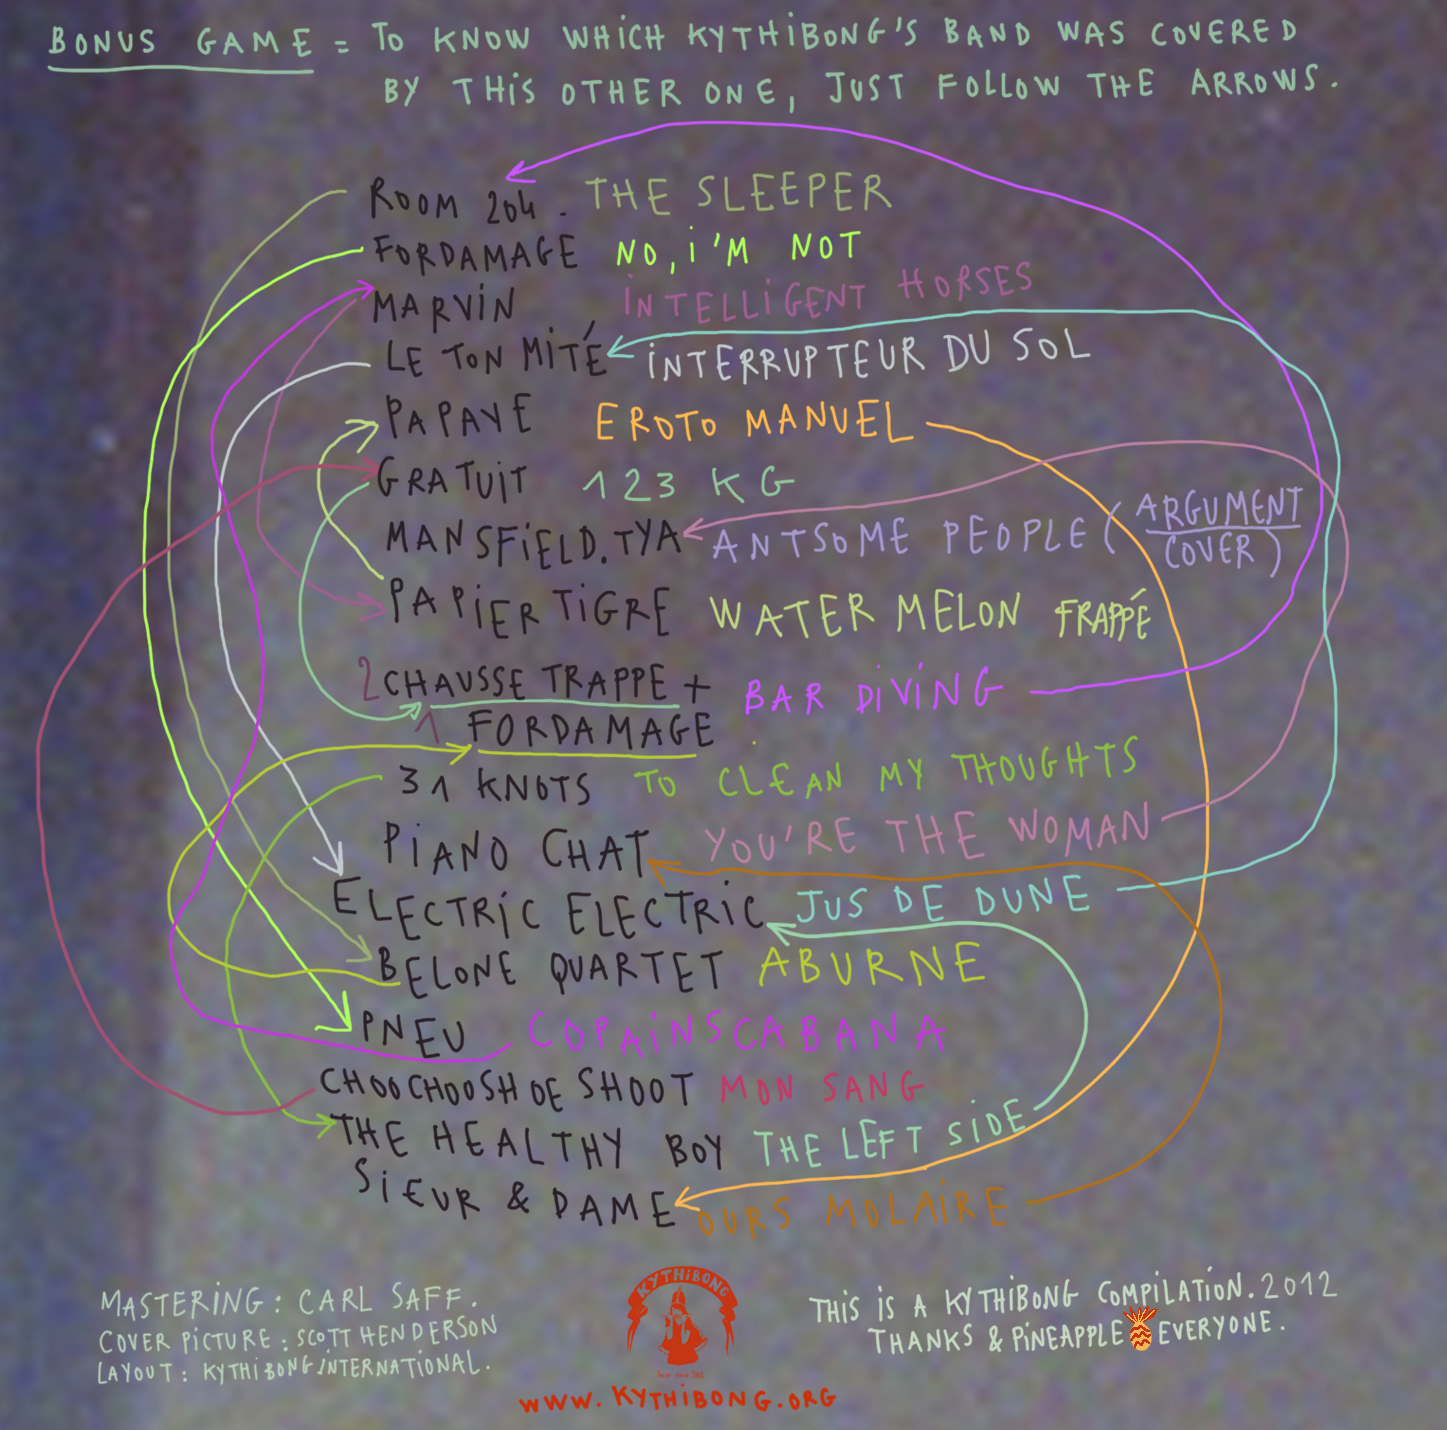 BONUS GAME = TO KNOW WHICH KYTHIBONG'S BAND WAS COVERED
BY THIS OTHER ONE, JUST FOLLOW THE ARROWS.
ROOM 204. THE SLEEPER
FORDAMAGE NO, i'M NOT
MARVIN INTELLIGENT HORSES
LE TON MITÉ INTERRUPTEUR DU SOL
PAPAYE EROTO MANUEL
GRATUIT 123 KG
MANSFIELD.TYA ANTSOME PEOPLE (ARGUMENT COVER)
PAPIER TIGRE WATER MELON FRAPPÉ
2 CHAUSSE TRAPPE + BAR DIVING
1 FORDAMAGE
31 KNOTS TO CLEAN MY THOUGHTS
PIANO CHAT YOU'RE THE WOMAN
ELECTRIC ELECTRIC JUS DE DUNE
BELONE QUARTET ABURNE
PNEU COPAINSCABANA
CHOOCHOOSHOE SHOOT MON SANG
THE HEALTHY BOY THE LEFT SIDE
SIEUR & DAME OURS MOLAIRE
MASTERING : CARL SAFF.
COVER PICTURE : SCOTT HENDERSON
LAYOUT : KYTHIBONG INTERNATIONAL.
KYTHIBONG
WWW.KYTHIBONG.ORG
THIS IS A KYTHIBONG COMPILATION. 2012
THANKS & PINEAPPLE EVERYONE.